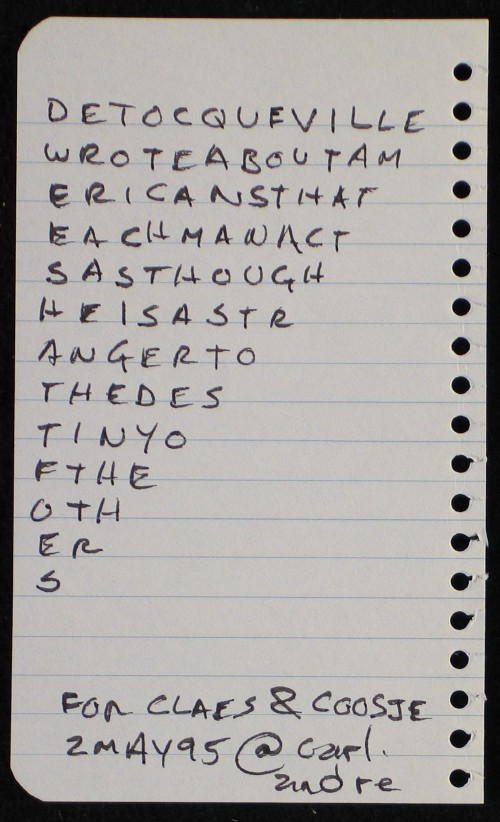 DETOCQUEVILLE
WROTEABOUTAM
ERICANSTHAT
EACHMANACT
SASTHOUGH
HEISASTR
ANGERTO
THEDES
TINYO
FTHE
OTH
ER
S
FOR CLAES & COOSJE
2MAY95 @ carl.
andre